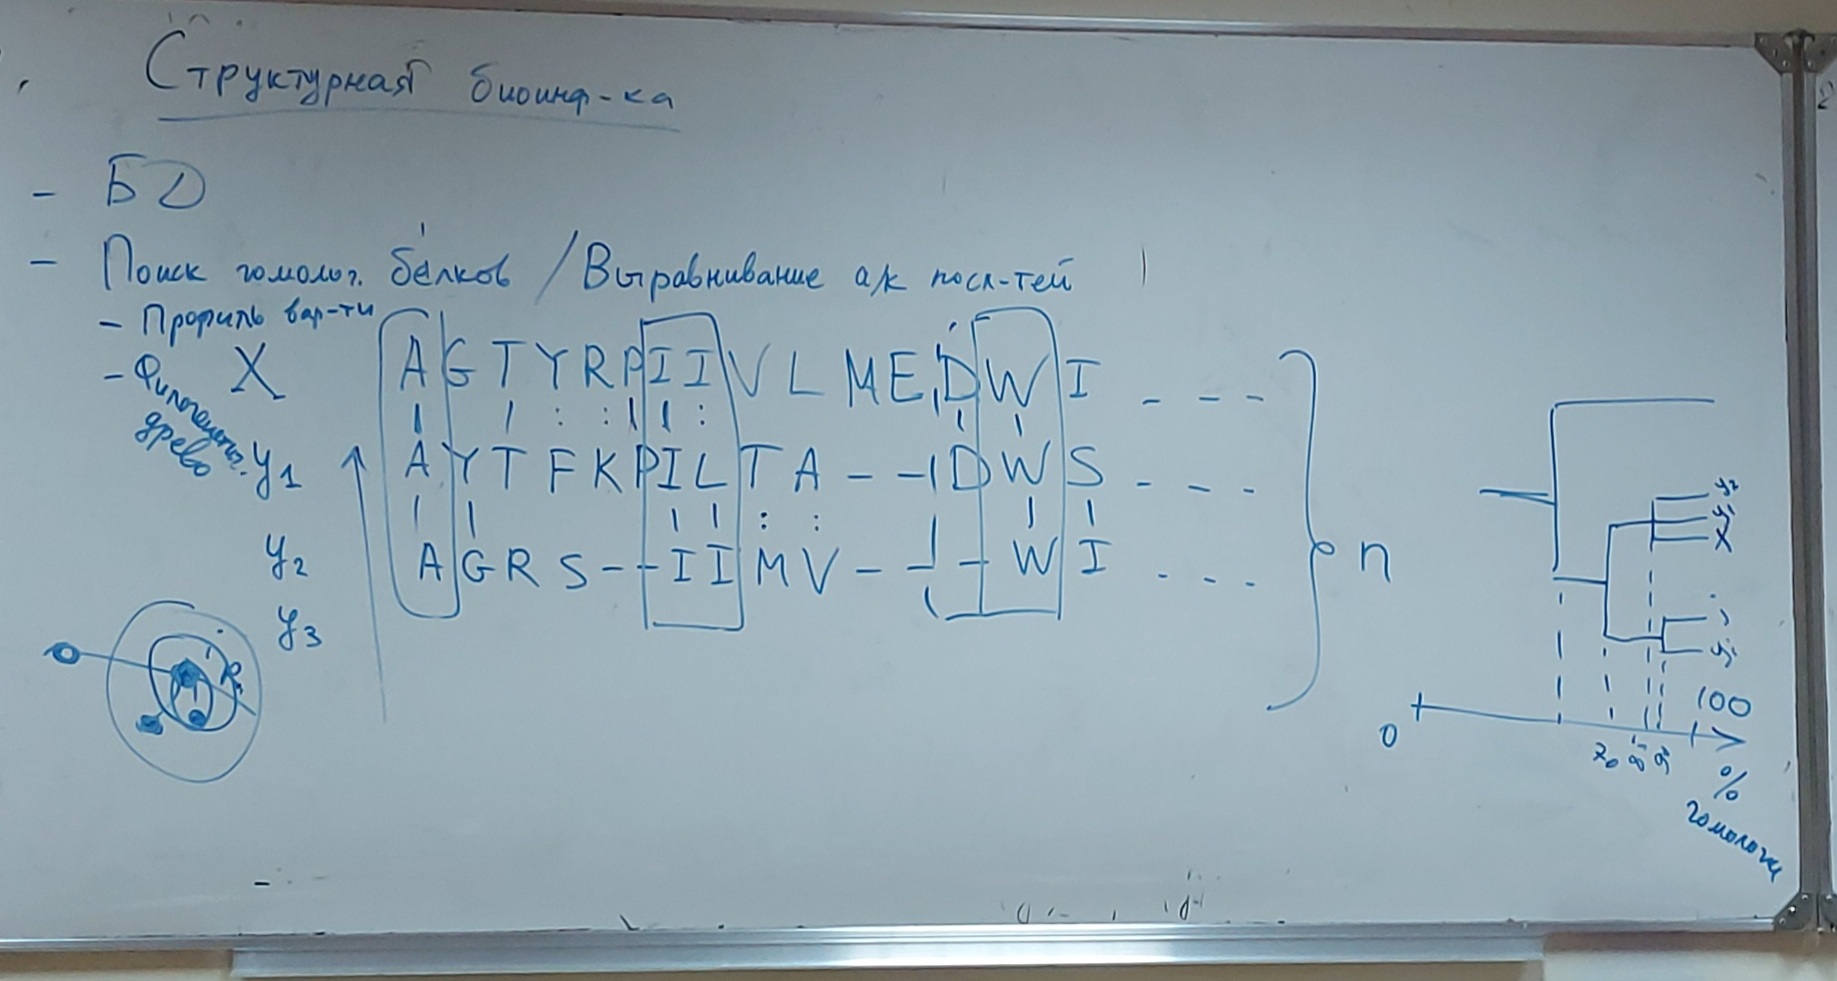 Структурная биоинф-ка
- БД
- Поиск гомолог. белков / Выравнивание а/к посл-тей
- Профиль вар-ти
- Филогенетич. древо
X A G T Y R P I I V L M E D W I - - -
| | : : | | : | |
y1 A Y T F K P I L T A - - D W S - - -
| | | | : : | |
y2 A G R S - - I I M V - - - W I - - -
y3
n
R
y2
y1
X
yj
0
100
70
80
95
%
гомологии